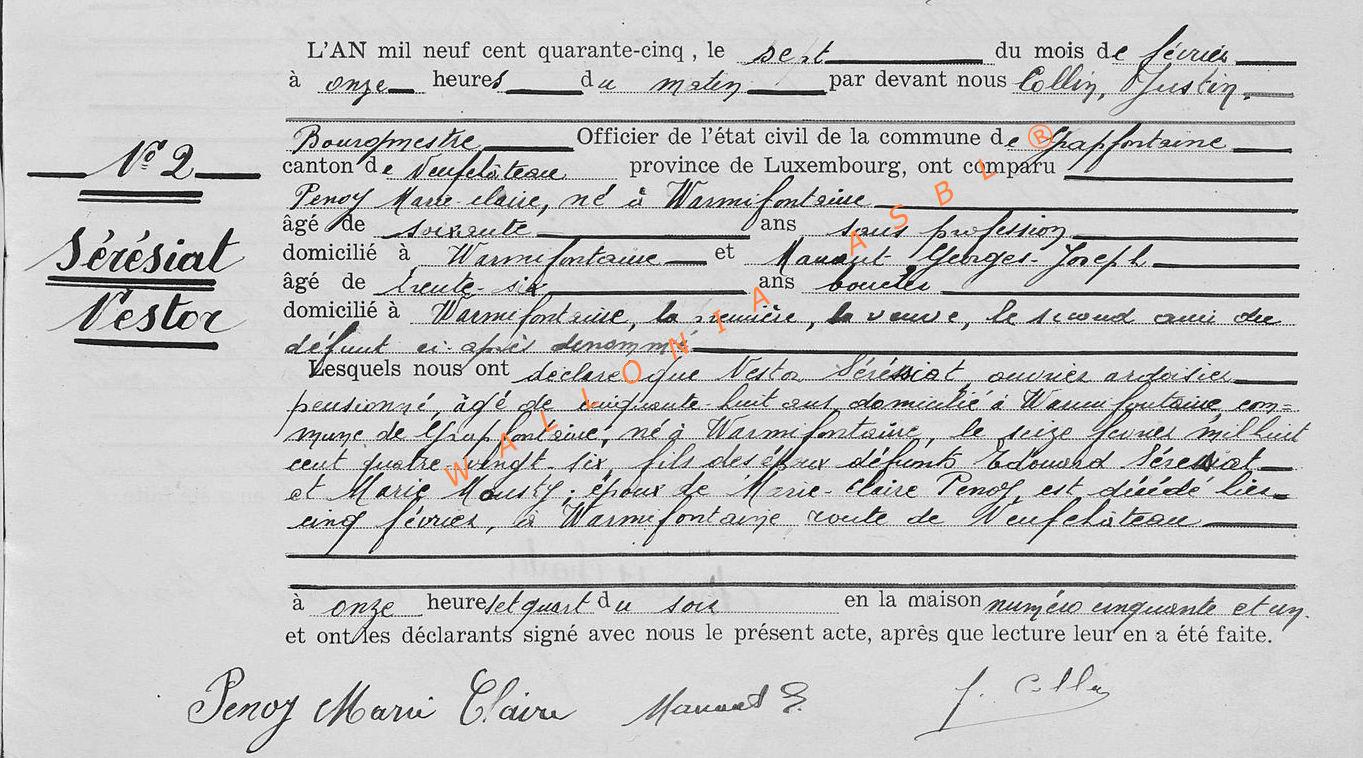 L'AN mil neuf cent quarante-cinq, le sept du mois de février
à onze heures du matin par devant nous Collin, Justin,
Bourgmestre Officier de l'état civil de la commune de Grapfontaine
N° 2
canton de Neufchâteau province de Luxembourg, ont comparu
Penoy Marie-Claire, né à Warmifontaine
âgé de soixante ans sans profession
Sérésiat
domicilié à Warmifontaine et Georges-Joseph
âgé de trente-six ans
Nestor
domicilié à Warmifontaine, la première, la veuve, le second ami du
défunt ci-après dénommé
Lesquels nous ont déclaré que Nestor Sérésiat, ouvrier ardoisier
pensionné, âgé de cinquante-huit ans domicilié à Warmifontaine com=
mune de Grapfontaine, né à Warmifontaine, le seize février mil huit
cent quatre-vingt-six, fils des époux défunts Edouard Sérésiat
et Marie Mousty; époux de Marie-Claire Penoy, est décédé hier
cinq février, à Warmifontaine route de Neufchâteau
à onze heures et quart du soir en la maison numéro cinquante et un.
et ont les déclarants signé avec nous le présent acte, après que lecture leur en a été faite.
Penoy Marie Claire G. J. Collin
WALLONIA ASBL ®